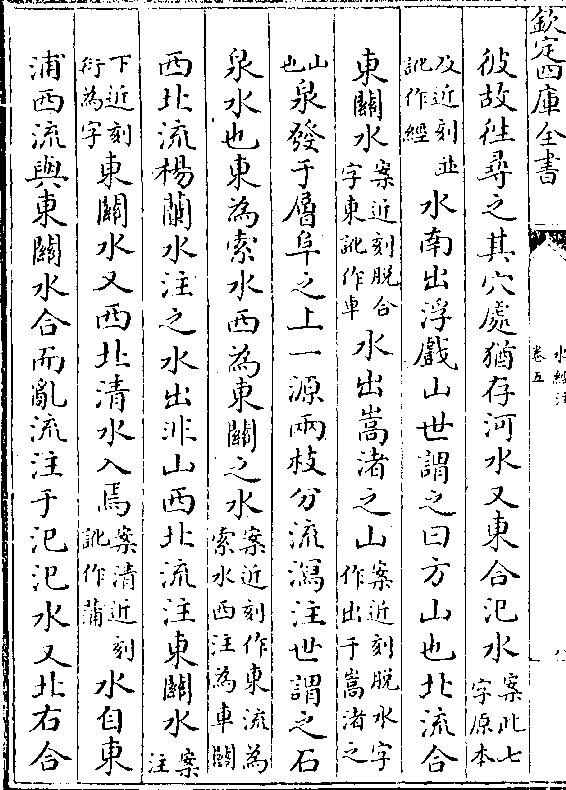 欽定四庫全書
水經注
卷五
彼故往尋之其穴處猶存河水又東合汜水案此七字原本
及近刻並訛作經水南出浮戲山世謂之曰方山也北流合
東關水案近刻脫合字東訛作車水出嵩渚之山案近刻脫水字作出于嵩渚之
山也泉發于層阜之上一源兩枝分流瀉注世謂之石
泉水也東為索水西為東關之水案近刻作東流為索水西注為車關
西北流楊蘭水注之水出非山西北流注東關水案注
下近刻衍為字東關水又西北清水入焉案清近刻訛作蒲水自東
浦西流與東關水合而亂流注于汜汜水又北右合